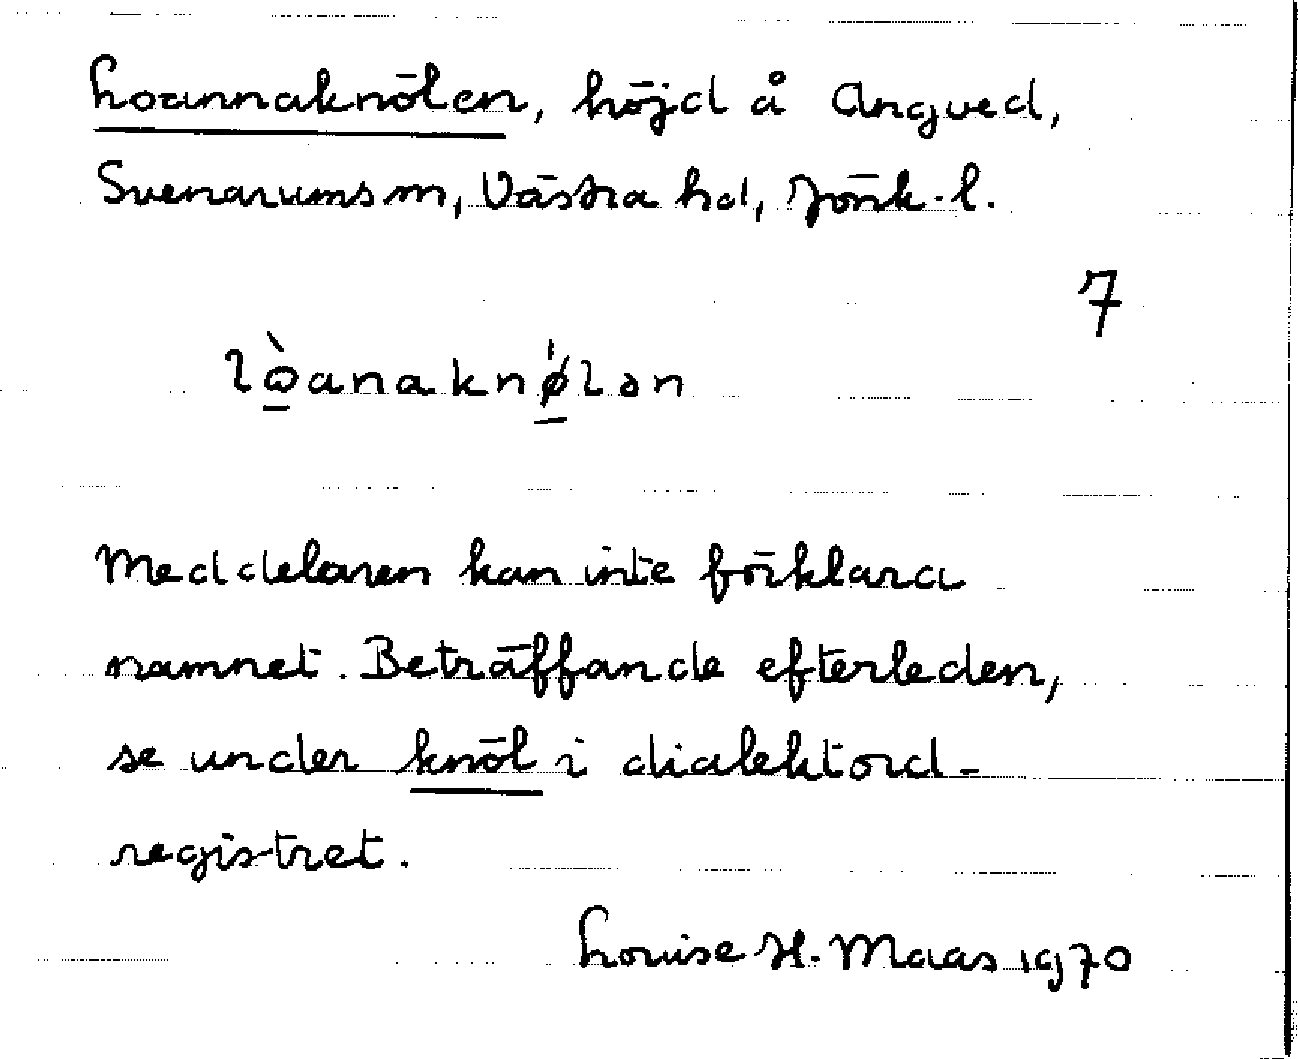 Loannaknölen, höjd å Angved,
Svenarums sn, Västra hd, Jönk. l.
7
lò̲anaknø̲̍lən
Meddelaren kan inte förklara
namnet. Beträffande efterleden,
se under knöl i dialektord-
registret.
Louise H. Maas 1970